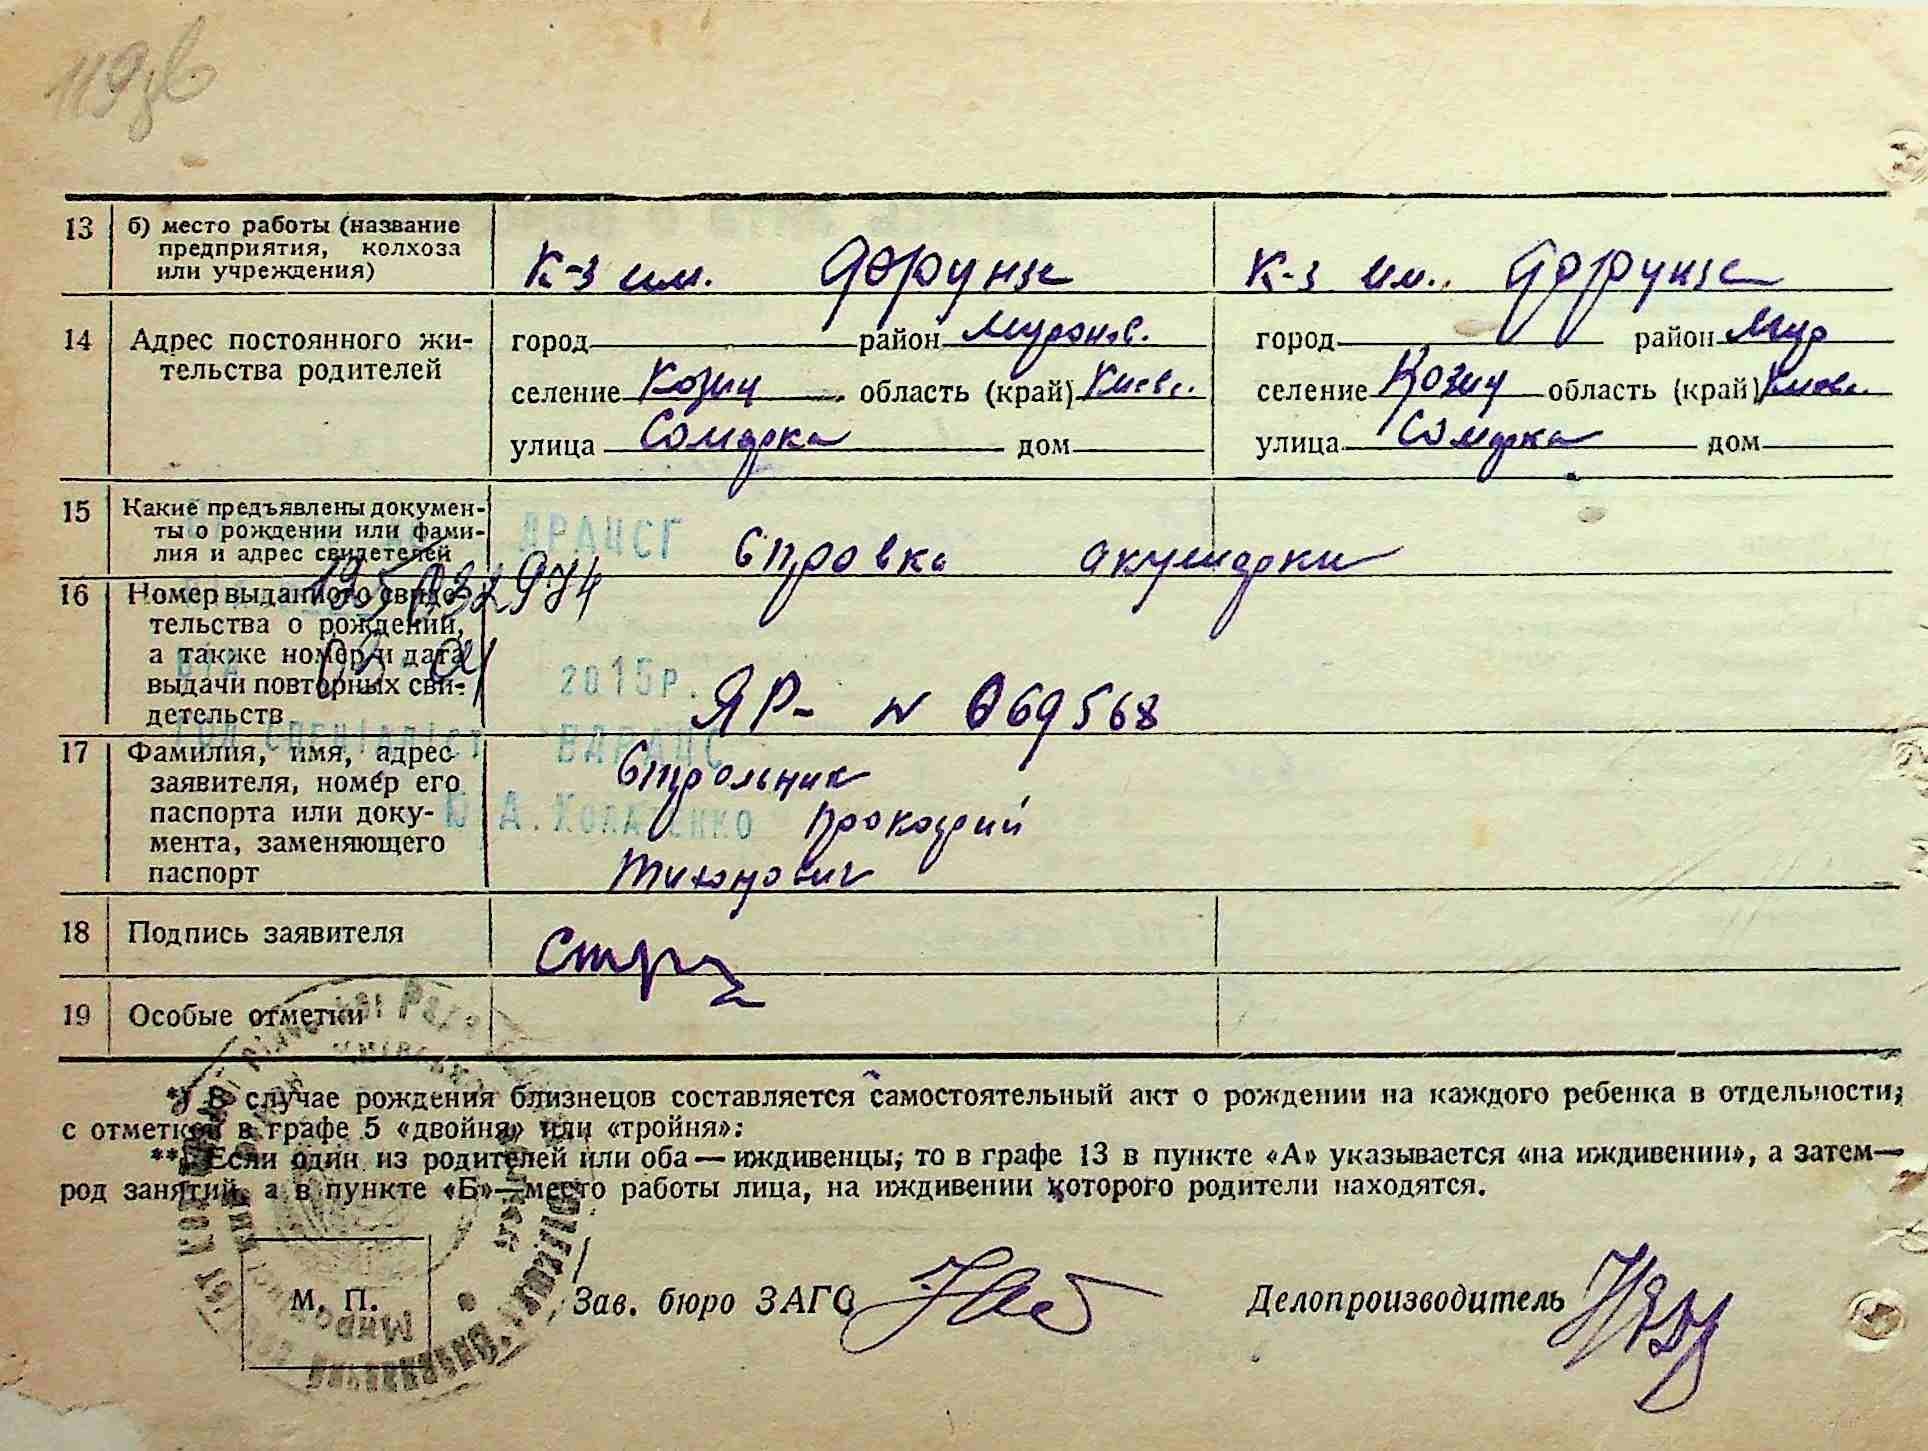 119зв
13 б) место работы (название
предприятия, колхоза
или учреждения)
К-з им. Фрунзе К-з им. Фрунзе
14 Адрес постоянного жи-
тельства родителей
город район Миронов. город район Мир
селение Козин область (край) Киевс. селение Козин область (край) Киевс.
улица дом улица дом
15 Какие предъявлены докумен-
ты о рождении или фами-
лия и адрес свидетелей
ДРАЦСГ
Справка акушерки
16 Номер выданного свиде-
тельства о рождении,
а также номер и дата
выдачи повторных сви-
детельств
2015р.
ЯР- N 069568
17 Фамилия, имя, адрес
заявителя, номер его
паспорта или доку-
мента, заменяющего
паспорт
Строльник
Прокофий
Тихонович
18 Подпись заявителя
19 Особые отметки
*) В случае рождения близнецов составляется самостоятельный акт о рождении на каждого ребенка в отдельности,
с отметкой в графе 5 «двойня» или «тройня».
**) Если один из родителей или оба — иждивенцы, то в графе 13 в пункте «А» указывается «на иждивении», а затем—
род занятий, а в пункте «Б»—место работы лица, на иждивении которого родители находятся.
М. П. Зав. бюро ЗАГС Делопроизводитель